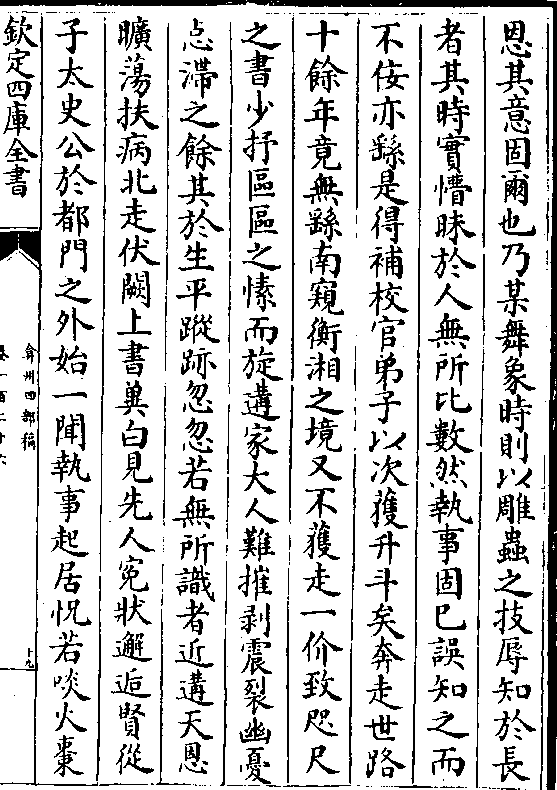 恩其意固爾也乃某舞象時則以雕蟲之技辱知於長
者其時實懵昧於人無所比數然執事固已誤知之而
不佞亦繇是得補校官弟子以次獲升斗矣奔走世路
十餘年竟無繇南窺衡湘之境又不獲走一价致咫尺
之書少抒區區之愫而旋遘家大人難摧剥震裂幽憂
惉滯之餘其於生平蹤跡忽忽若無所識者近遘天恩
曠蕩扶病北走伏闕上書兾白見先人寃狀邂逅賢從
子太史公於都門之外始一聞執事起居怳若啖火棗
欽定四庫全書
弇州四部稿
卷一百二十六
十九